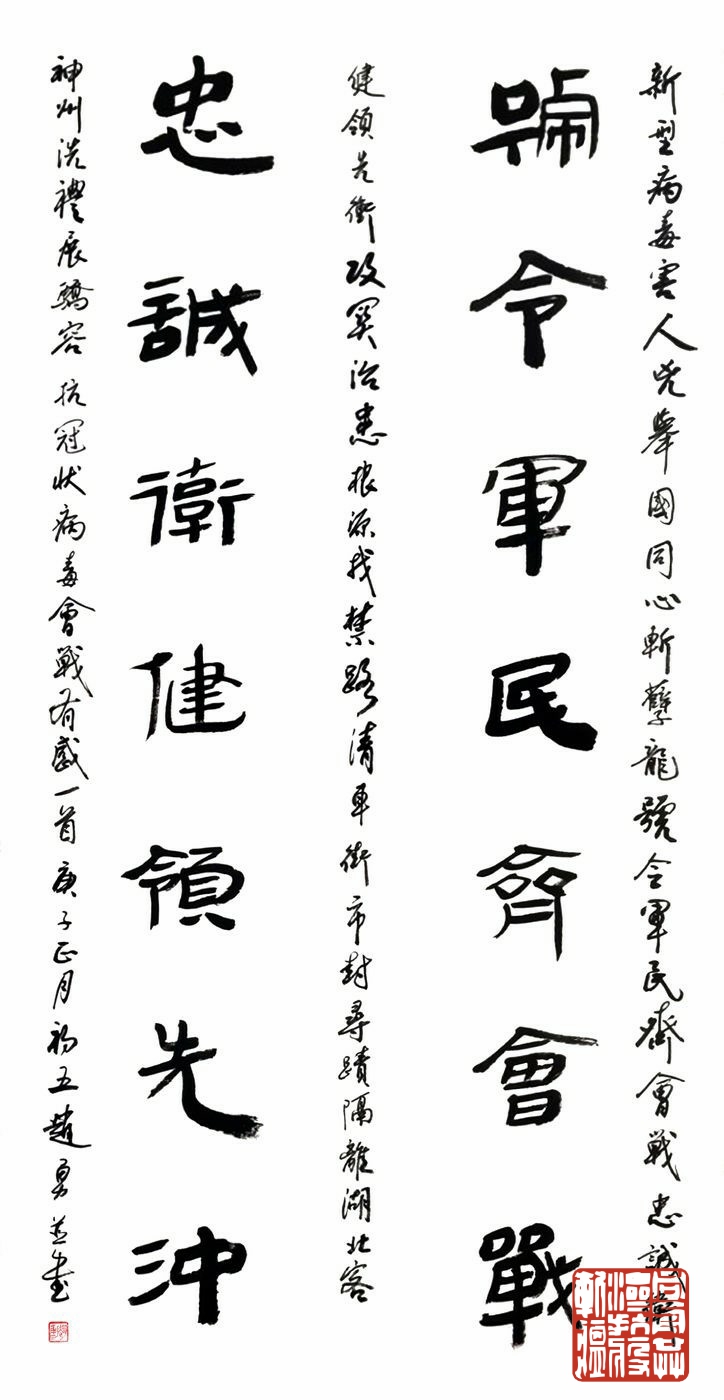 新型病毒害人兇舉國同心斬孽龍號令軍民齊會戰忠誠衛
號令軍民齊會戰
健領先衝攻関治患根源找禁路清車街市封尋蹟隔離湖北客
忠誠衛健領先沖
神州洗禮展驕容 抗冠狀病毒會戰有感一首 庚子正月初五趙勇並書